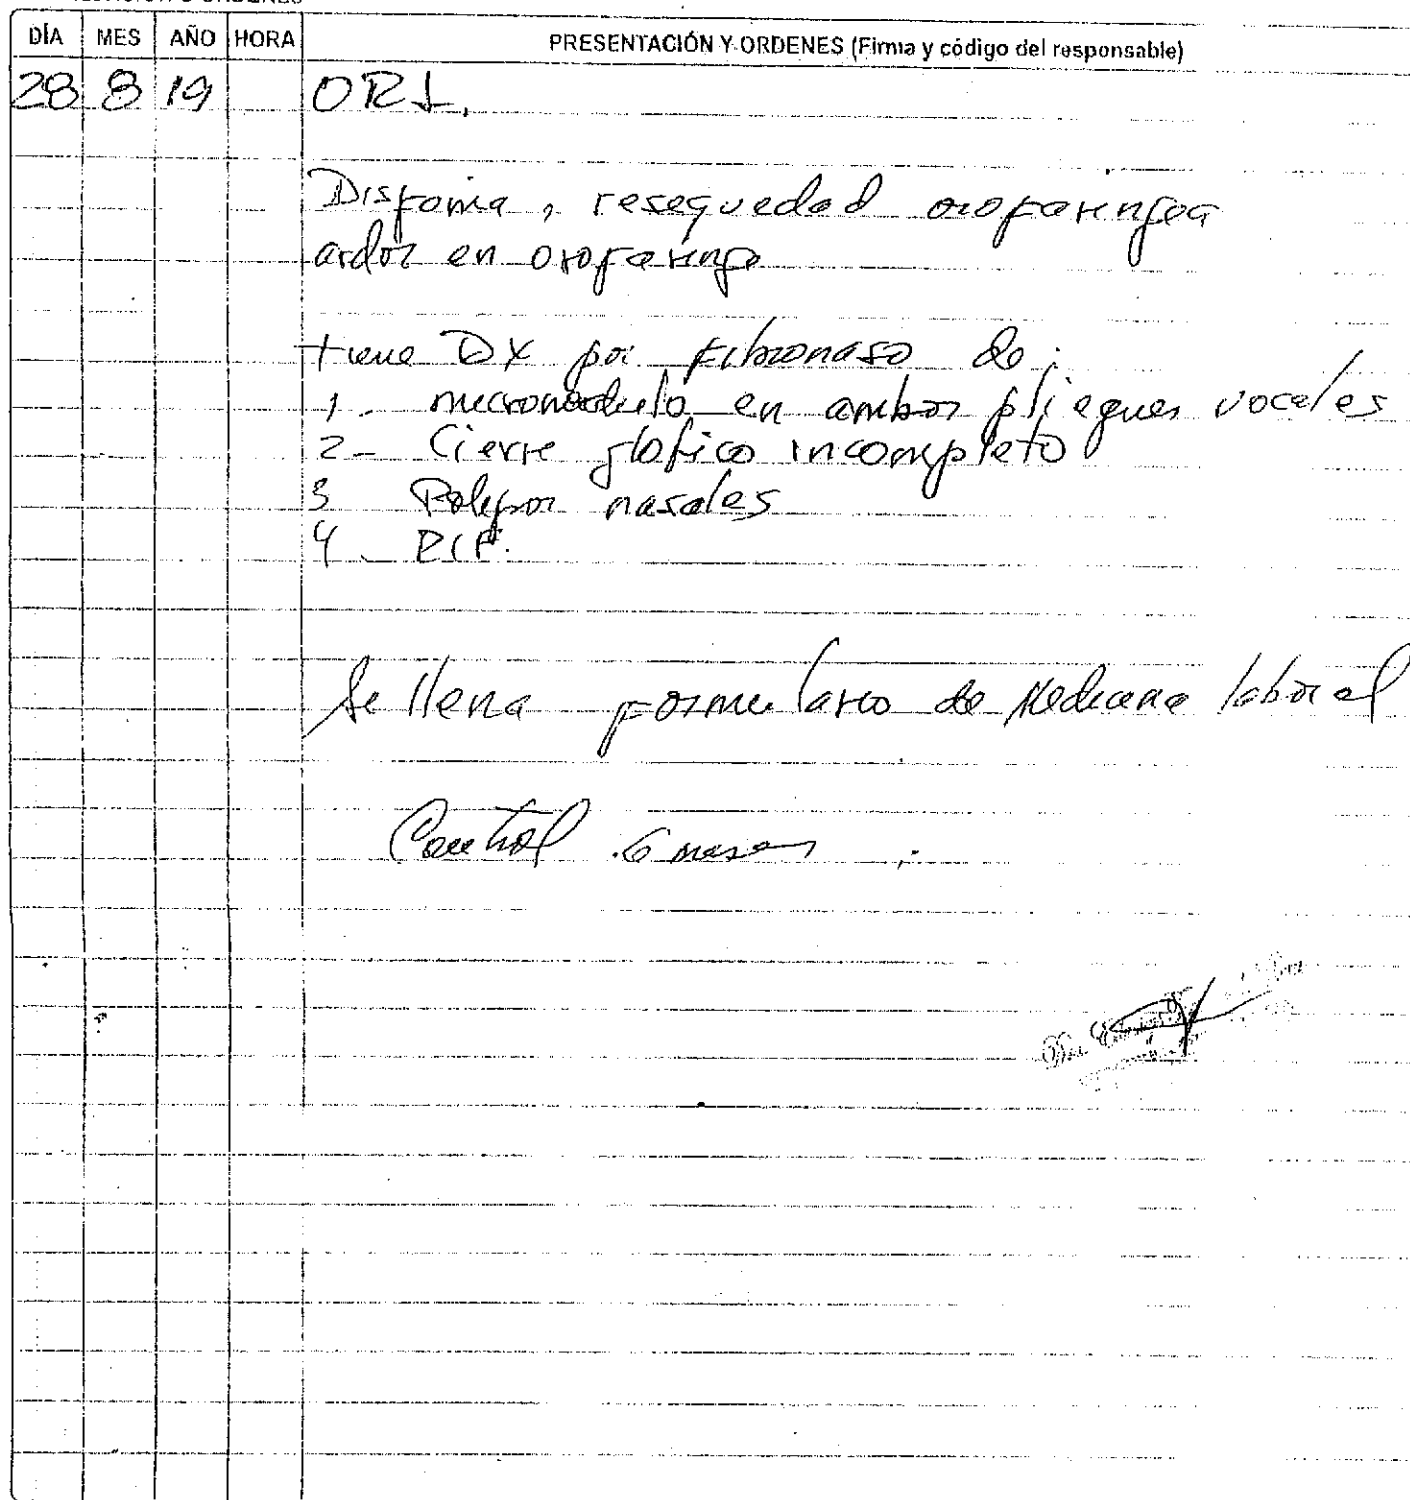 DÍA MES AÑO HORA PRESENTACIÓN Y ORDENES (Firma y código del responsable)
28 8 19 ORL.
Disfonia, resequedad orofaringea
ardor en orofaringe
tiene DX por fibronaso de:
1. micronodulo en ambos pliegues vocales
2- Cierre glotico incompleto
3 Polipos nasales
4.
Se llena formulario de Medicina laboral
Control 6 meses.